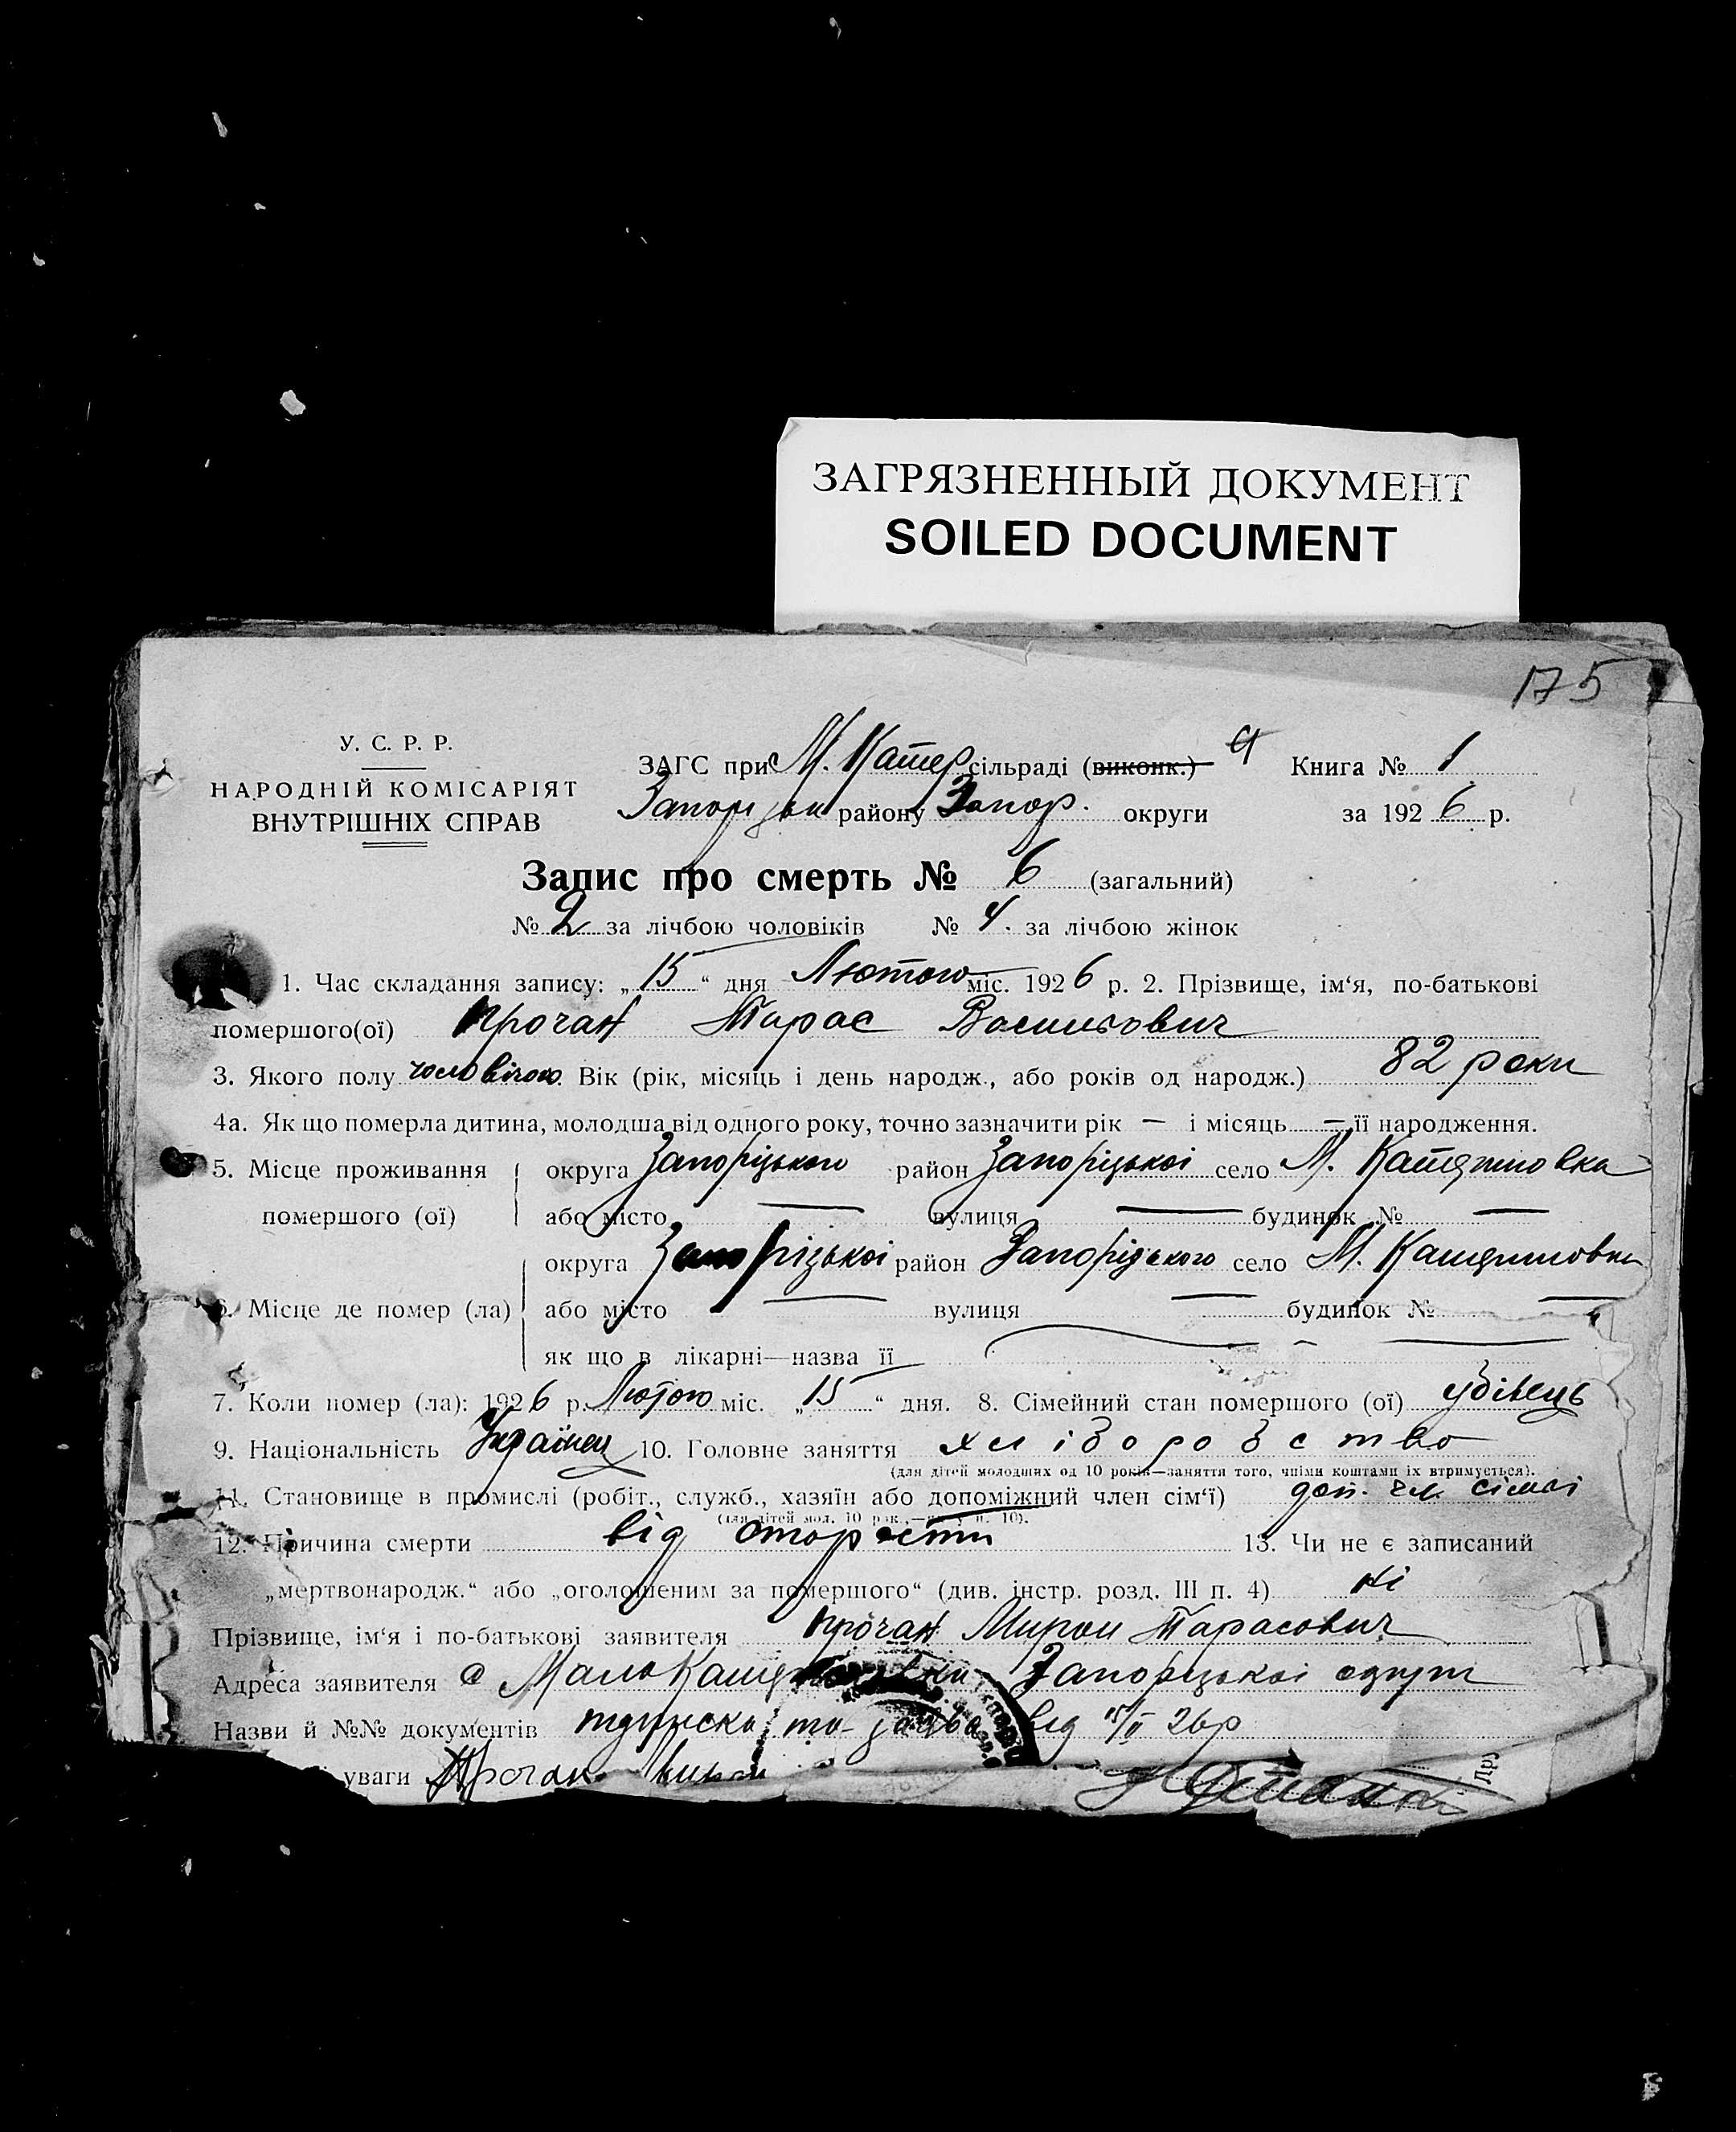 ЗАГРЯЗНЕННЫЙ ДОКУМЕНТ
SOILED DOCUMENT
175
У. С. Р. Р.
НАРОДНІЙ КОМІСАРІЯТ
ВНУТРІШНІХ СПРАВ
ЗАГС при М. Катер сільраді (виконк.) Книга № 1
району Запор. округи за 1926 р.
Запис про смерть № 6 (загальний)
№ 2 за лічбою чоловіків № 4. за лічбою жінок
1. Час складання запису: „15“ дня Лютого міс. 1926 р. 2. Прізвище, ім‘я, по-батькові
помершого(ої) Прочан Тарас Васильович
3. Якого полу Вік (рік, місяць і день народж., або років од народж.) 82 роки
4а. Як що померла дитина, молодша від одного року, точно зазначити рік — і місяць — її народження.
5. Місце проживання округа Запоріцького район Запоріцької село М.
помершого (ої) або місто — вулиця — будинок № —
округа Запоріцької район Запоріцького село М.
6. Місце де помер (ла) або місто — вулиця — будинок № —
як що в лікарні—назва її —
7. Коли помер (ла): 1926 р. Лютого міс. „15“ дня. 8. Сімейний стан помершого (ої) удівець
9. Національність Українец 10. Головне заняття хліборобство
(для дітей молодших од 10 років—заняття того, чиїми коштами їх втримується).
11. Становище в промислі (робіт., служб., хазяїн або допоміжний член сім‘ї) доп. чл. сімьі
(для дітей мол. 10 рок.,— п. 10).
12. Причина смерти від старости 13. Чи не є записаний
„мертвонародж.“ або „оголошеним за помершого“ (див. інстр. розд. III п. 4) ні
Прізвище, ім‘я і по-батькові заявителя Прочан Мирон Тарасович
Адреса заявителя с Мало Запоріцької
Назви й №№ документів та від 15/II 26р
уваги Прочан